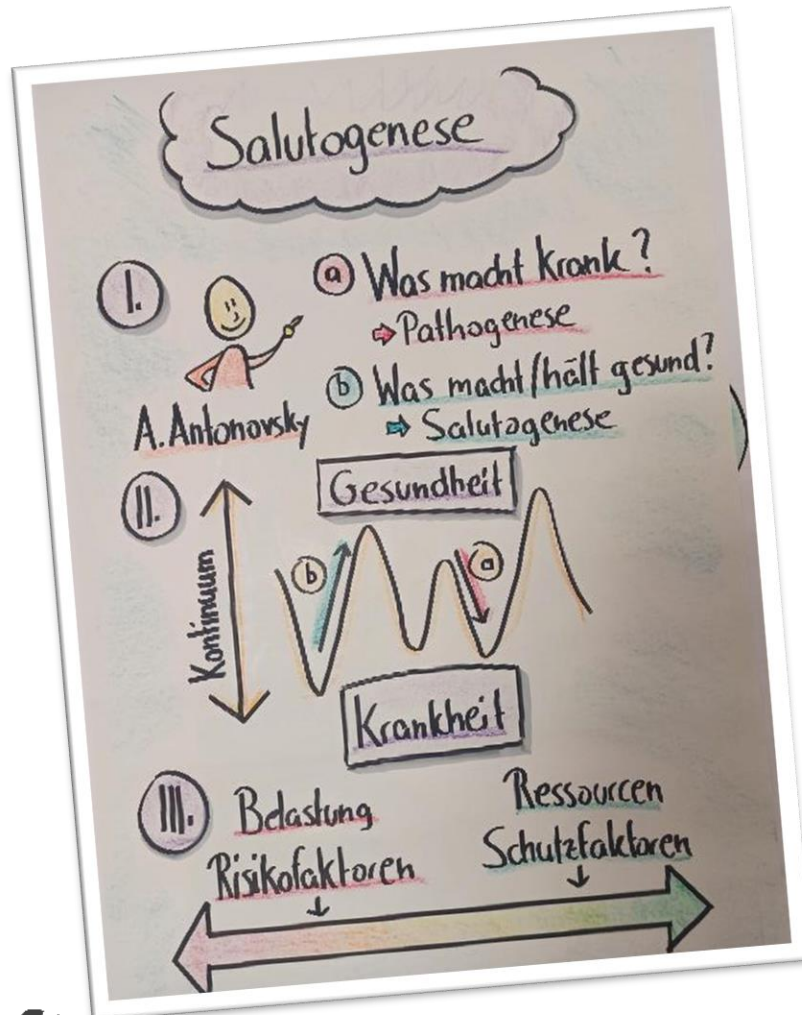 Salutogenese
I.
A. Antonovsky
a Was macht krank?
⇨ Pathogenese
b Was macht/hält gesund?
⇨ Salutogenese
II.
Kontinuum
Gesundheit
b
a
Krankheit
III.
Belastung
Risikofaktoren
↓
Ressourcen
Schutzfaktoren
↓